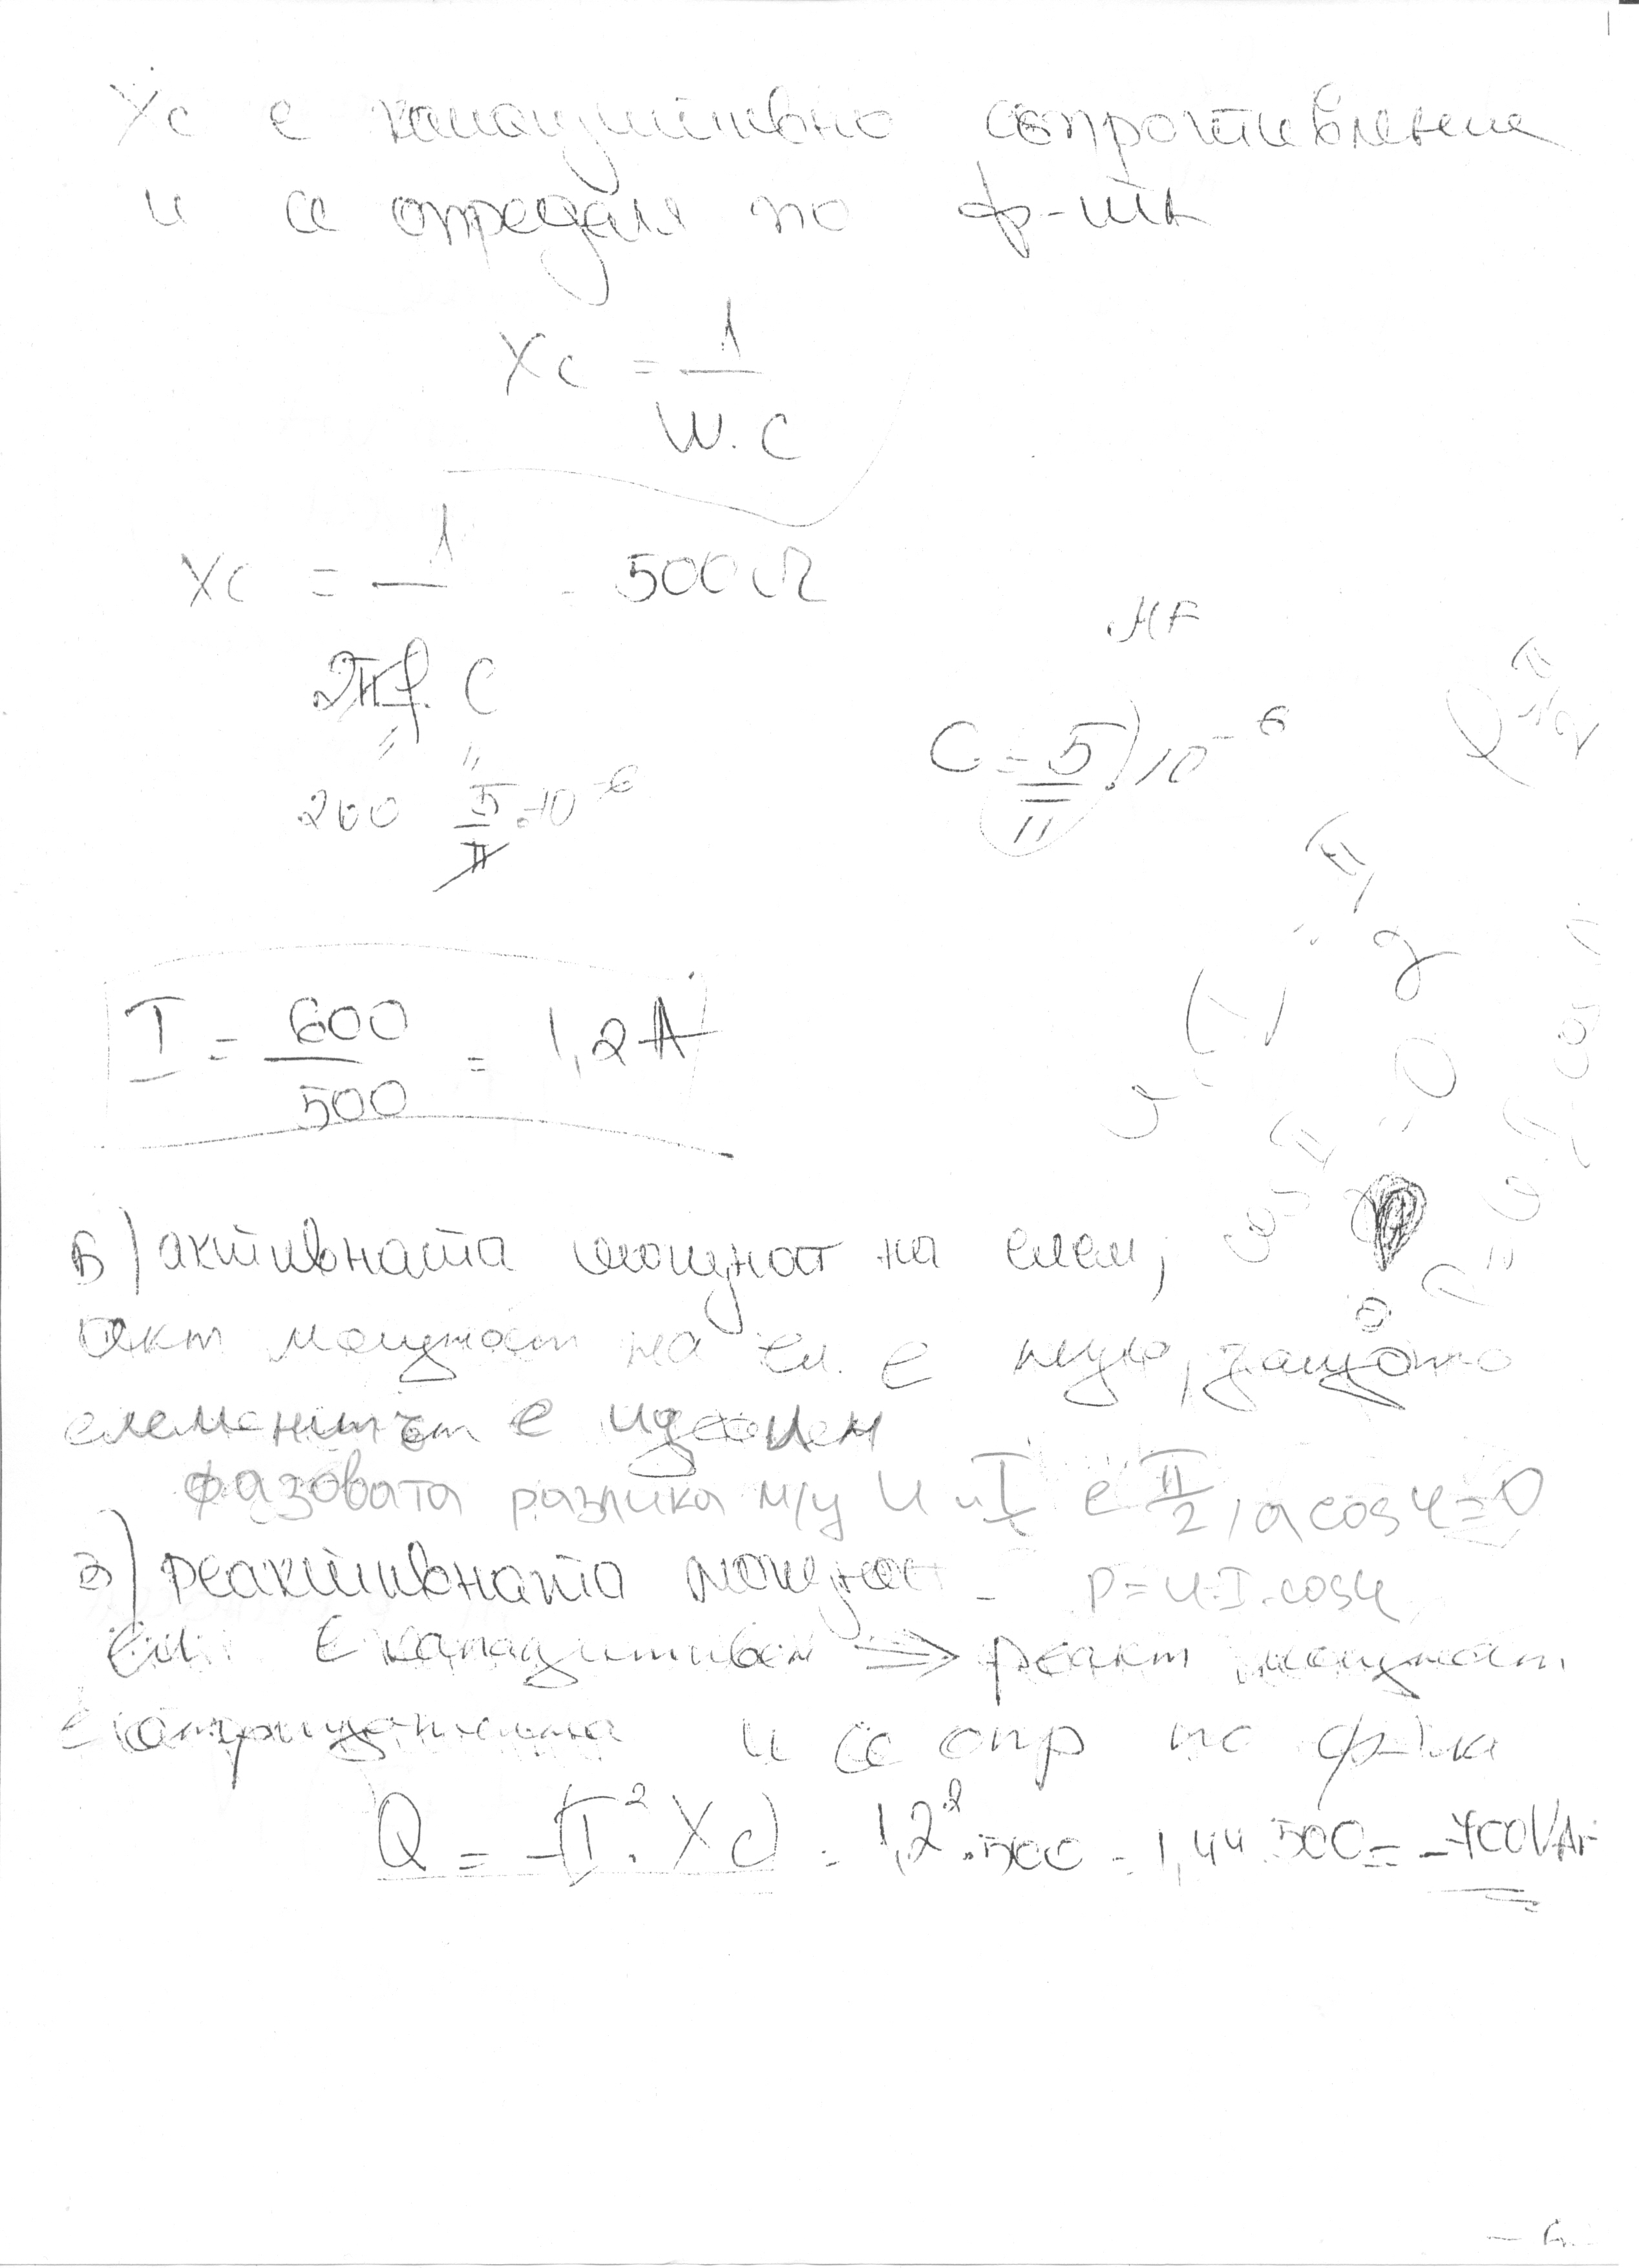 Xc е капацитивно съпротивление
и се определя по ф-та
Xc = 1
W.C
Xc = 1 = 500 Ω
2πf. C
200 5/π.10⁻⁶
MF
C = 5/π . 10⁻⁶
I = 600/500 = 1,2 A
Б) активната мощност на елем;
Акт мощност на ел. е нула, защото
елементът е идеален
фазовата разлика м/у U и I е π/2, а cosφ=0
В) реактивната мощност - P=U.I.cosφ
Ел. е капацитивен ⇒ реакт мощност
е отрицателна и се опр по ф-ла
Q = -(I².Xc) = 1,2².500 = 1,44.500 = -700VAr